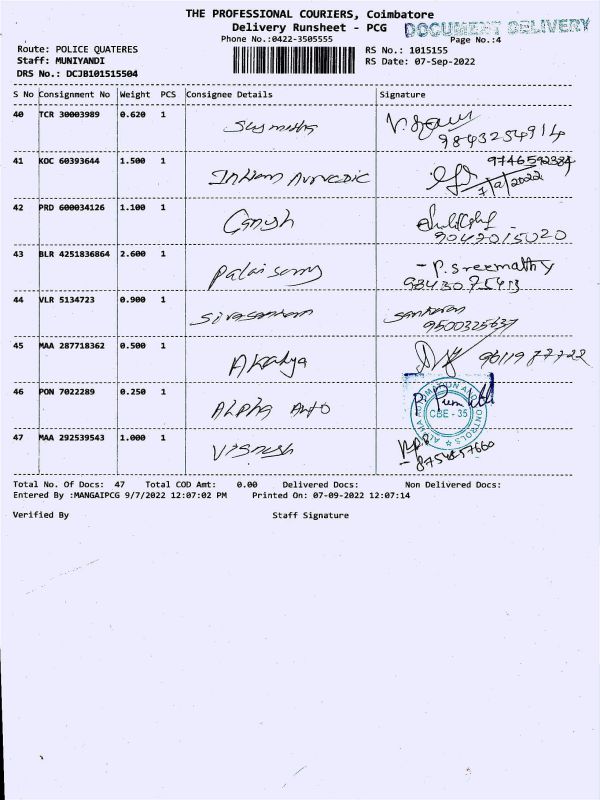 THE PROFESSIONAL COURIERS, Coimbatore
Delivery Runsheet - PCG
DOCUMENT DELIVERY
Phone No.:0422-3505555
Page No.:4
Route: POLICE QUATERES
RS No.: 1015155
Staff: MUNIYANDI
RS Date: 07-Sep-2022
DRS No.: DCJB101515504
S No Consignment No Weight PCS Consignee Details Signature
40 TCR 30003989 0.620 1 Susmitha
9843254914
41 KOC 60393644 1.500 1 Indian Ayurvedic 9746592384
7/9/2022
42 PRD 600034126 1.100 1 Ganesh
9042015020
43 BLR 4251836864 2.600 1 Palaisamy - P. Sreemathy
44 VLR 5134723 0.900 1 Sivasankaran Sankaran
9500325637
45 MAA 287718362 0.500 1 Akshya
46 PON 7022289 0.250 1 ALPHA AUTO
CBE - 35
47 MAA 292539543 1.000 1 Vignesh
Total No. Of Docs: 47 Total COD Amt: 0.00 Delivered Docs: Non Delivered Docs:
Entered By :MANGAIPCG 9/7/2022 12:07:02 PM Printed On: 07-09-2022 12:07:14
Verified By Staff Signature